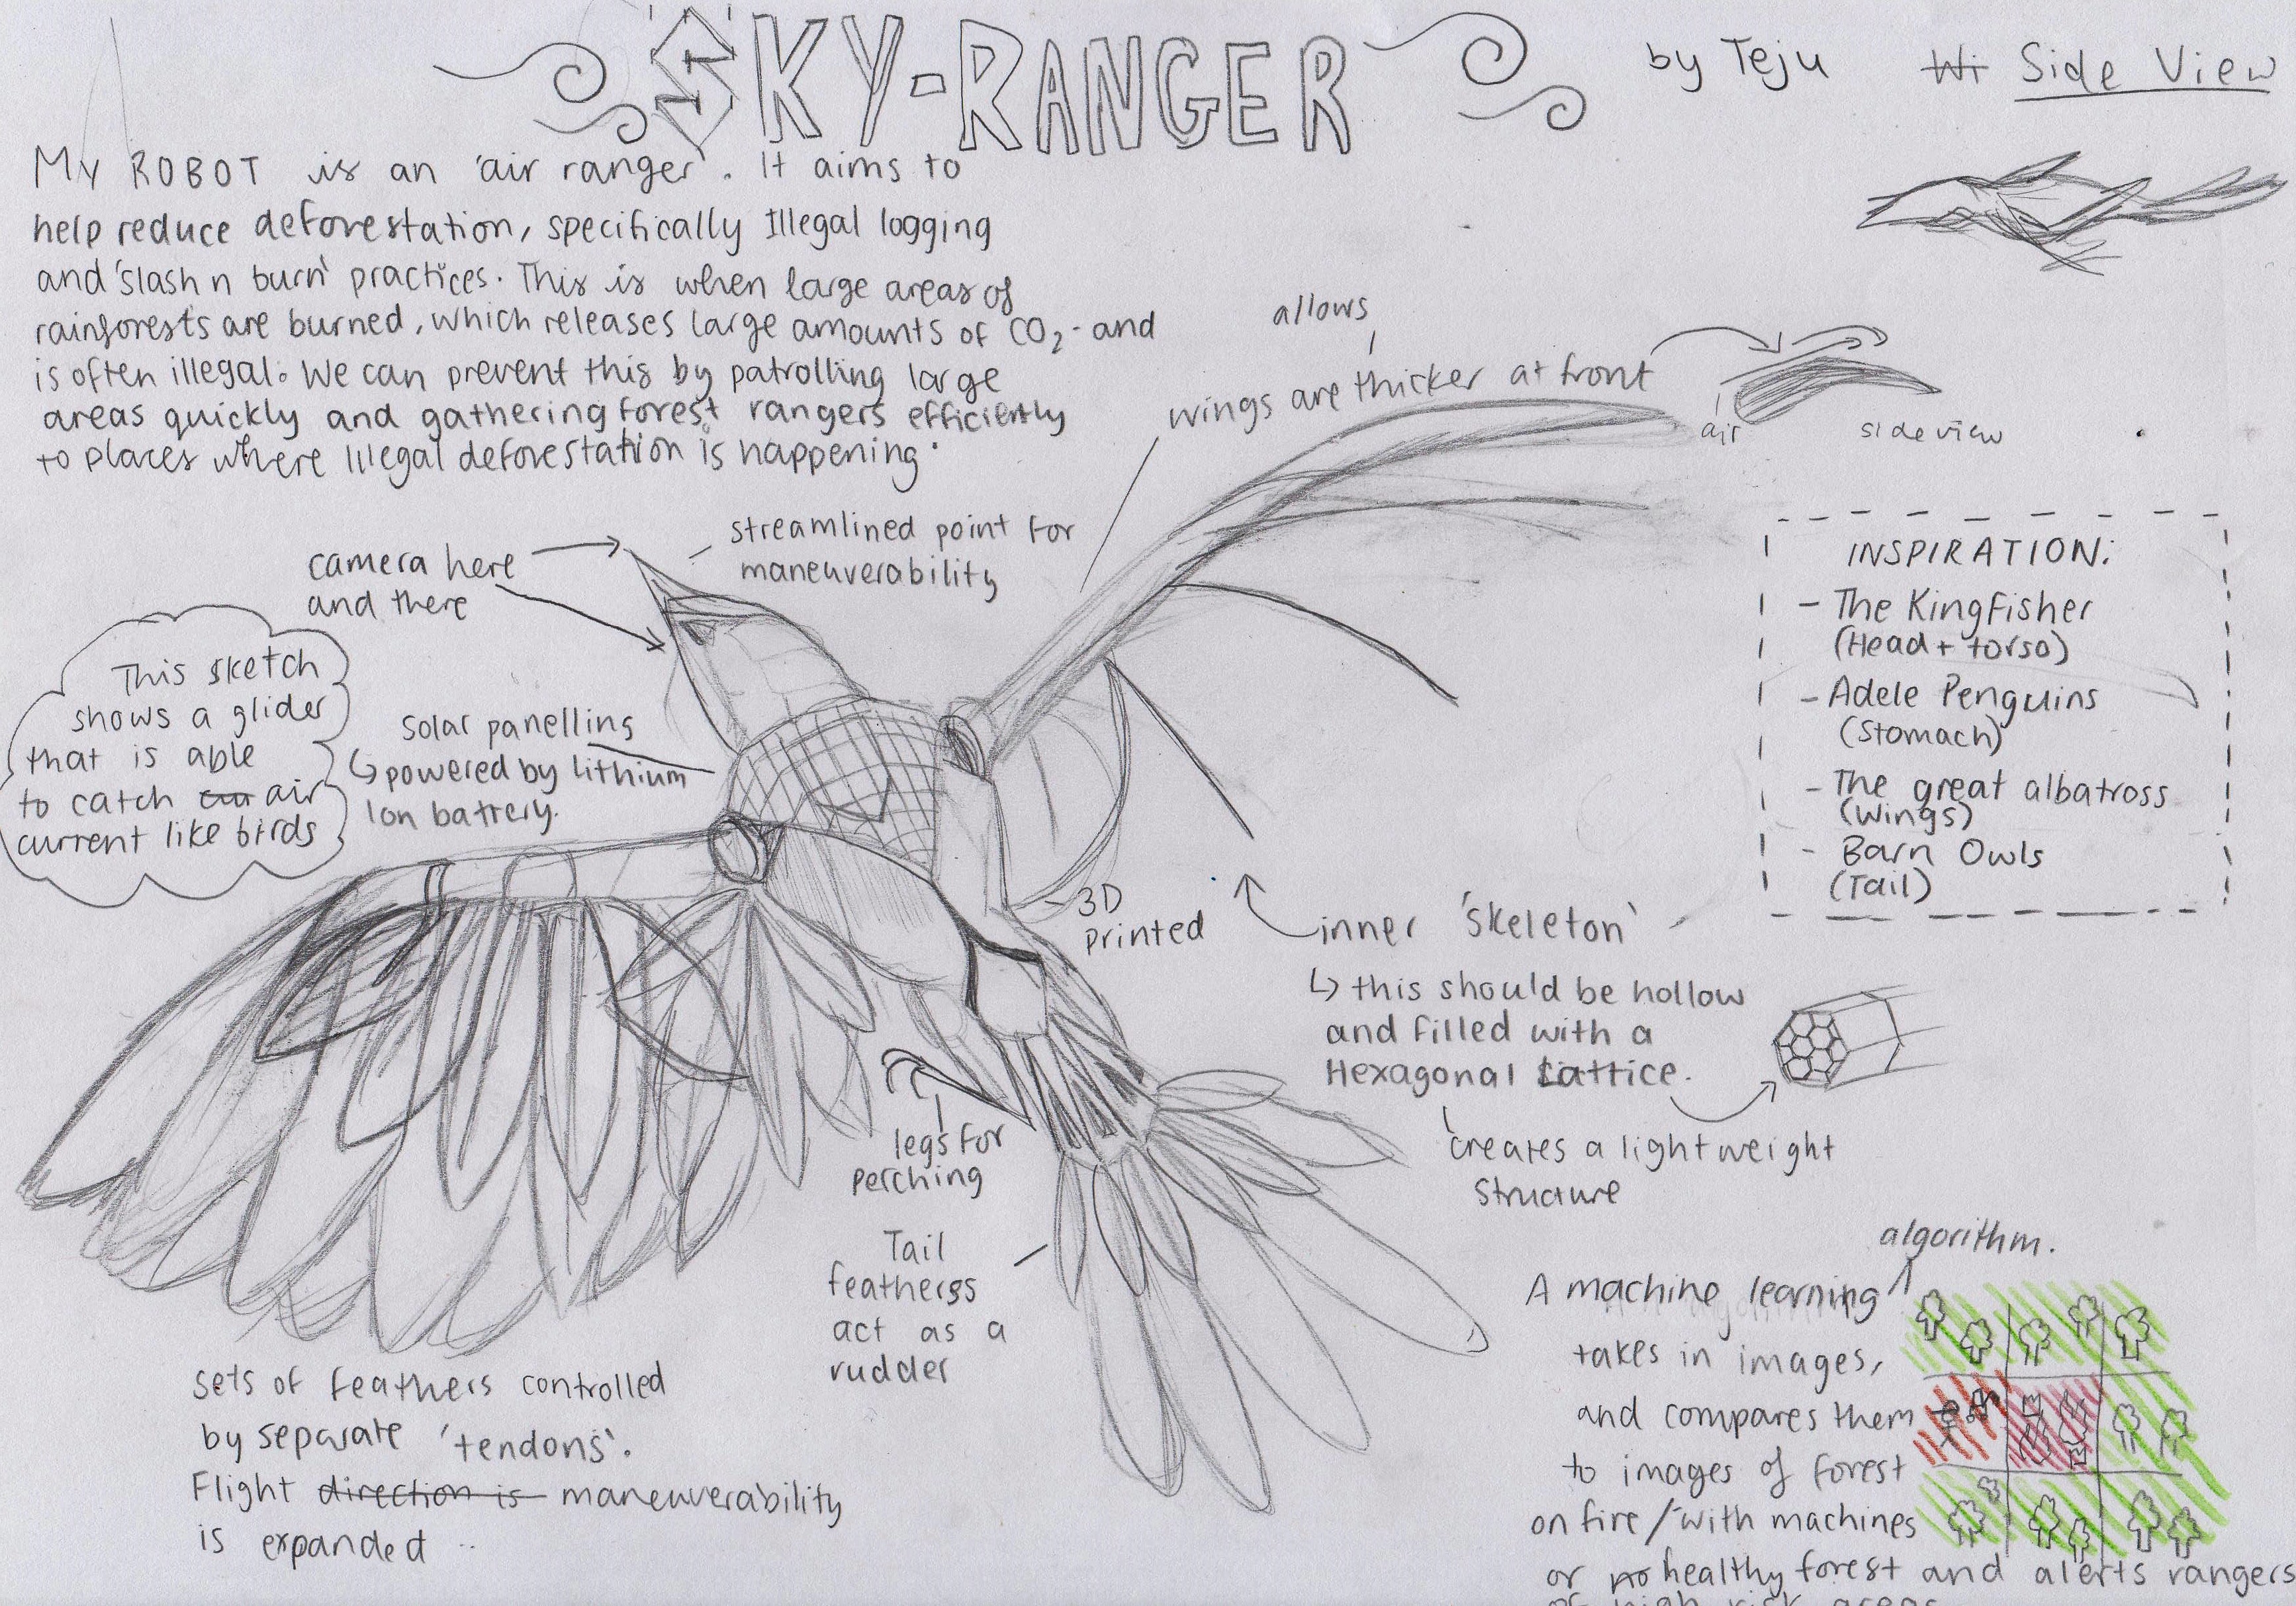 SKY-RANGER
by Teju
Side View
MY ROBOT is an 'air ranger'. It aims to
help reduce deforestation, specifically Illegal logging
and 'slash n burn' practices. This is when large areas of
rainforests are burned, which releases large amounts of CO2 - and
is often illegal. We can prevent this by patrolling large
areas quickly and gathering forest rangers efficiently
to places where Illegal deforestation is happening.
allows
wings are thicker at front
air
side view
camera here
and there
streamlined point for
maneuverability
This sketch
shows a glider
that is able
to catch air
current like birds
Solar panelling
↳ powered by lithium
Ion battery.
INSPIRATION:
- The Kingfisher
(Head + torso)
- Adele Penguins
(Stomach)
- The great albatross
(Wings)
- Barn Owls
(Tail)
3D
printed
inner 'skeleton'
↳ this should be hollow
and filled with a
Hexagonal Lattice.
creates a lightweight
structure
legs for
perching
Tail
feathers
act as a
rudder
sets of feathers controlled
by separate 'tendons'.
Flight direction is maneuverability
is expanded
algorithm.
A machine learning
takes in images,
and compares them
to images of forest
on fire/with machines
or no healthy forest and alerts rangers
of high risk areas